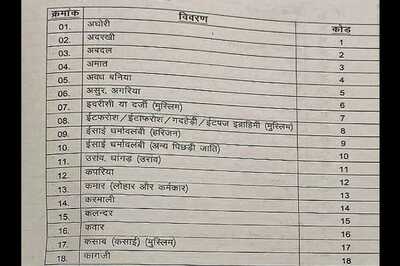 क्रमांक विवरण कोड
01. अघोरी 1
02. अदरखी 2
03. अबदल 3
04. अमात 4
05. अवध बनिया 5
06. असुर, अगरिया 6
07. इदरीसी या दर्जी (मुस्लिम) 7
08. ईटफरोश/ईटाफरोश/गदहेड़ी/ईटपज इब्राहिमी (मुस्लिम) 8
09. ईसाई धर्मावलंबी (हरिजन) 9
10. ईसाई धर्मावलंबी (अन्य पिछड़ी जाति) 10
11. उरांव, धांगड़ (उरांव) 11
12. कपरिया 12
13. कमार (लोहार और कर्मकार) 13
14. करमाली 14
15. कलन्दर 15
16. कवार 16
17. कसाब (कसाई) (मुस्लिम) 17
18. कागजी 18